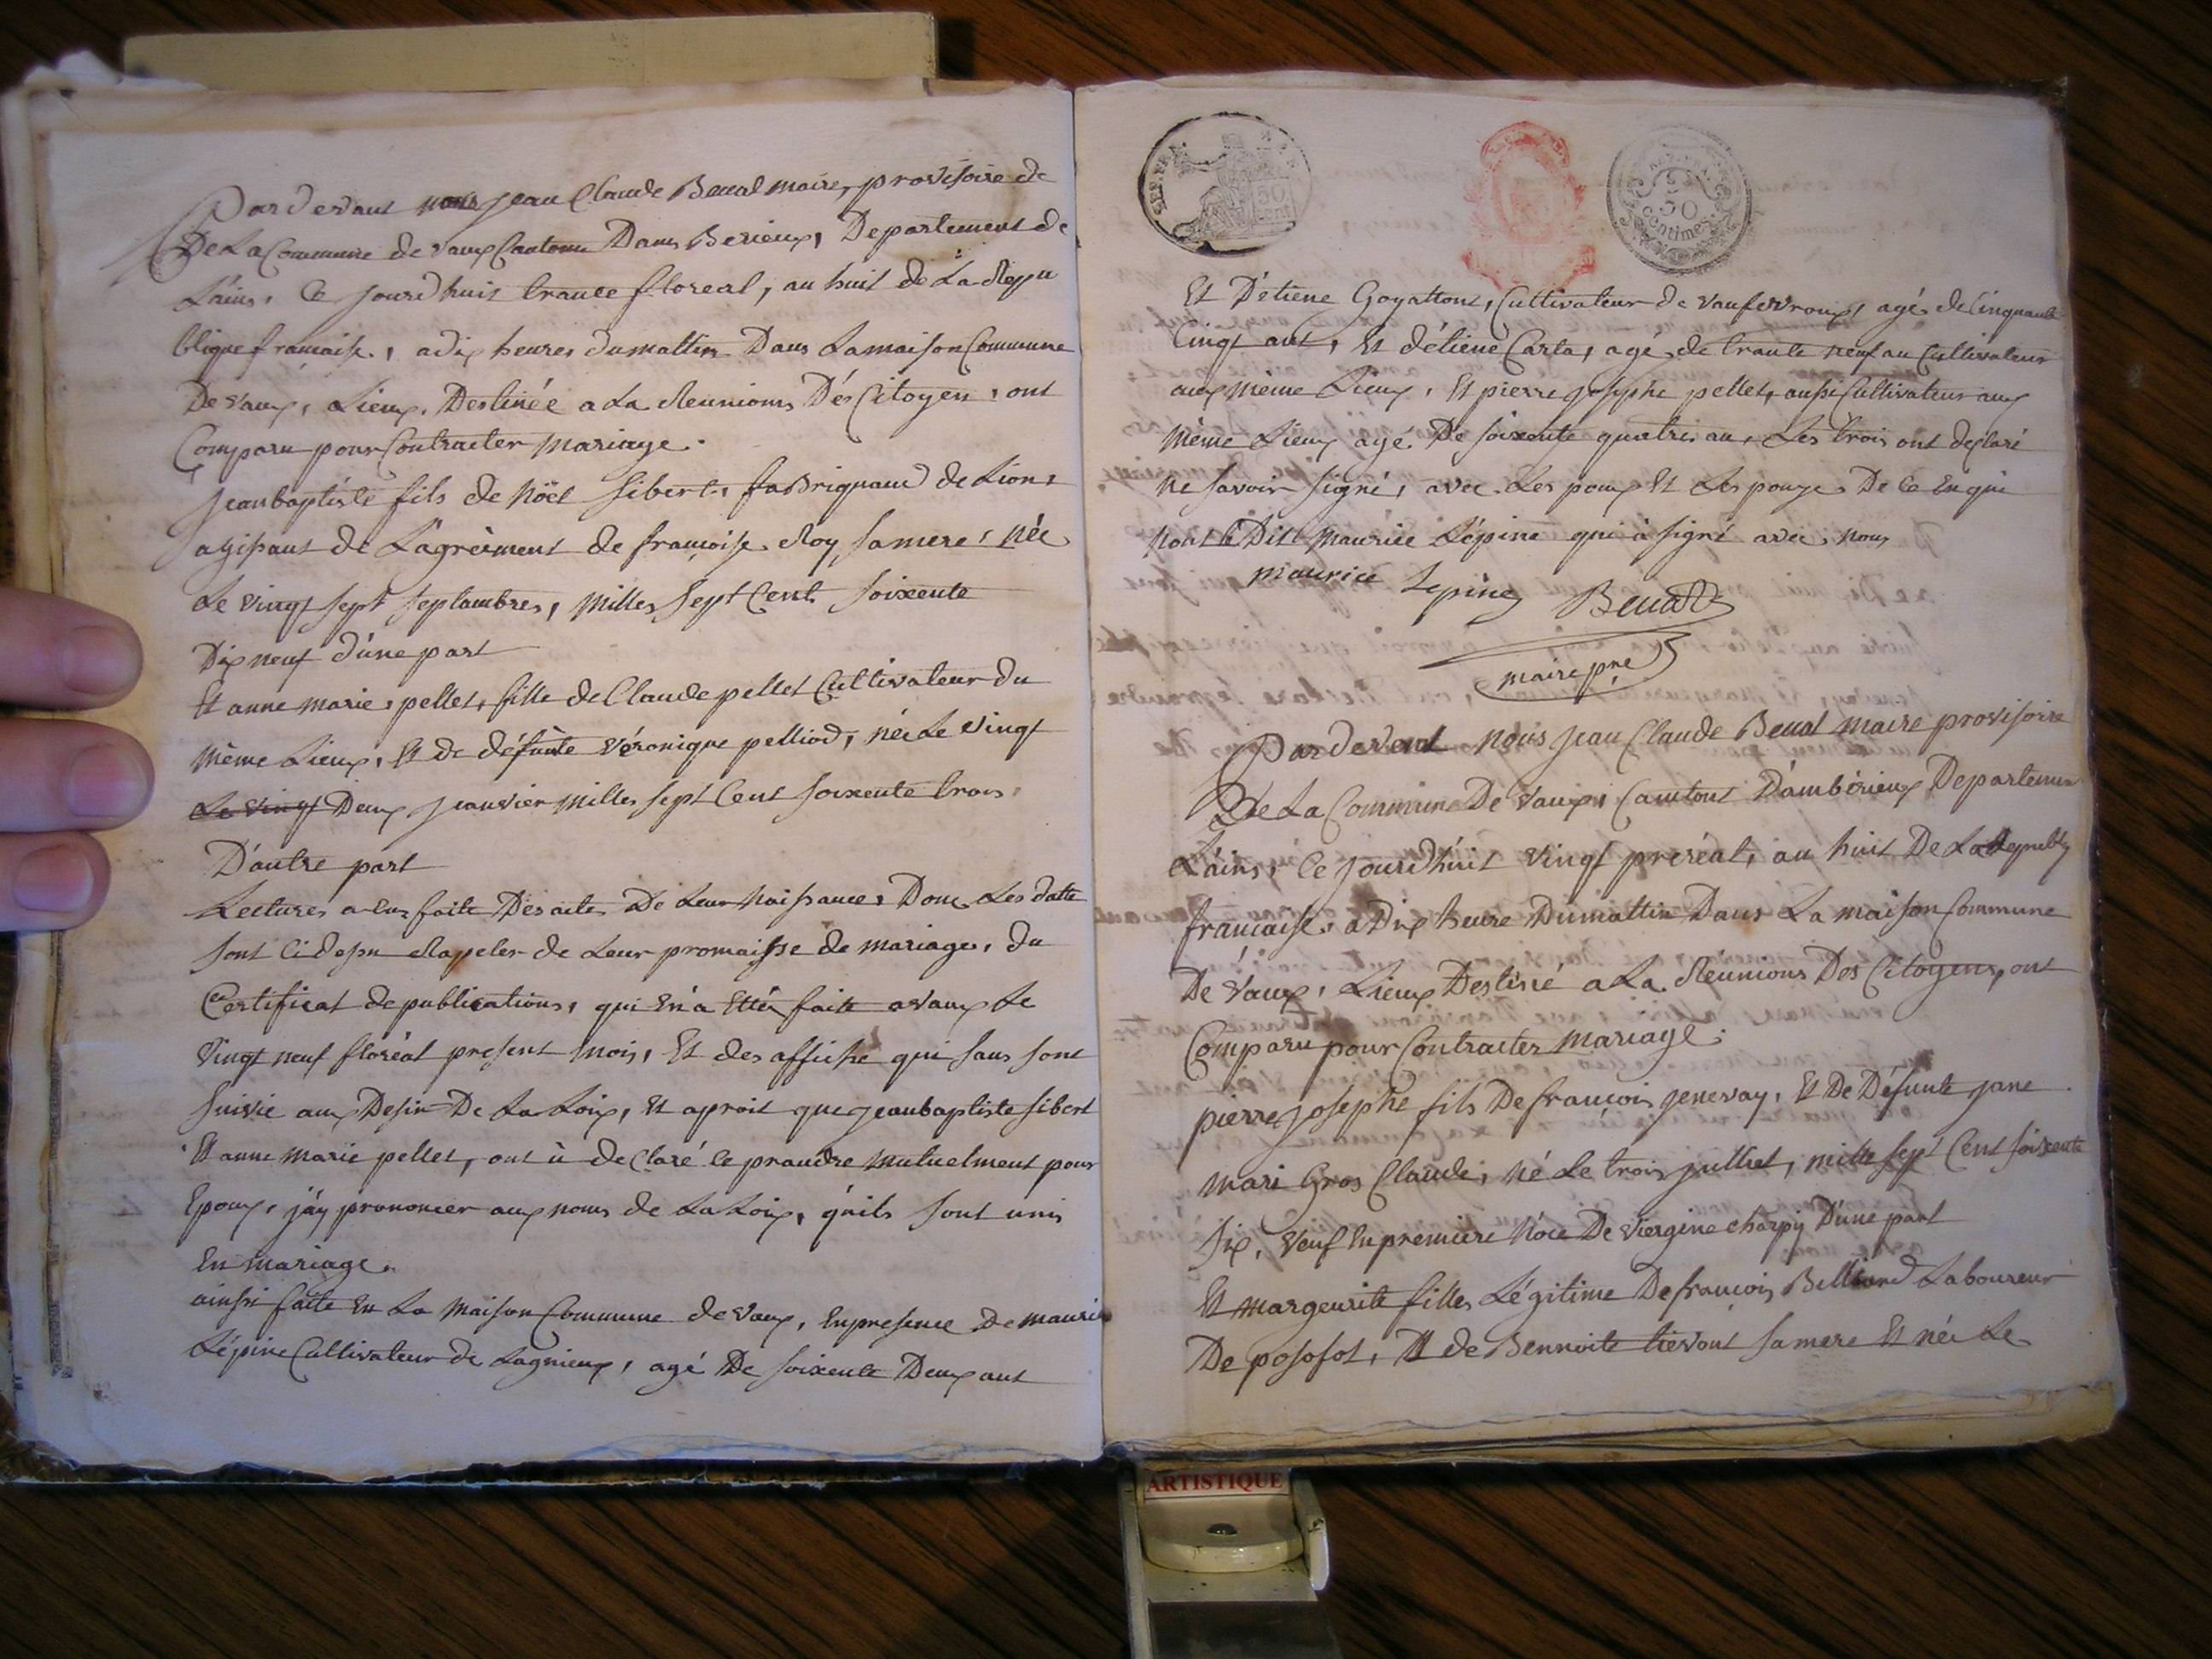 Pardevant nous jean Claude Beual maire, provisoire de
De La Commune de vaux Cantonu Dam Berieux, Departement de
L'ains, Ce jourd huit trante floreal, au huit de La Repu
blique francaise, a dix heures du mattin Dans La maison Commune
De vaux, Lieux, Destinée a La Reunions Dés Citoyen, ont
Comparu pour Contracter mariage.
Jean baptiste fils de Nöel Sibert, faBriquand de Lion,
agissant de L'agrèiment de françoise Roy sa mere, née
Le vingt sept septambres, milles sept Cent soixente
Dix neuf d'une part
Et anne marie pellet, fille de Claude pellet Cultivateur du
même Lieux, Et de défunte véronique pelliod, née Le vingt
Le vingt Deux jeanvier milles sept Cent soixente trois,
D'autre part
Lectures a eux faite Des acte De Leur naissance, Donc Les datte
sont Ci dessu Rapeler de Leur promaisse de mariage, du
Certificat de publications, qui en a Ettée faite a vaux Le
vingt neuf floréal present mois, Et des affiche qui sans sont
suivie aux Desir De La Loix, Et aproit que jean baptiste sibert
Et anne marie pellet, ont ù de Claré Ce prandre mutuelment pour
Epoux, j'ay prononcer aux noms de La Loix, qu'ils sont unis
En mariage.
ainsi faite En La maison Commune de vaux, En presence De mauric
Lépine Cultivateur de Lagnieux, agé De soixente Deux ant
REP. FRA.
50
cent
50
centimes
Et D'étiene Goyattont, Cultivateur de vaufevroux, agé de Cinquante
Cinqt ant, Et d'étiene Carta, agé de trante neuf an Cultivateur
aux même Lieux, Et pierre josephe pellet, aussi Cultivateur aux
même Lieux agé De soixente quatre an, Les trois ont declaré
ne savoir signé, avec Les poux Et Les pouze De Ce En qui
nont lé Dit maurice Lépine qui à signé avec nous
maurice Lepine Beual
maire pre
Pardevent nous jean Claude Beual maire provisoire
De La Commune De vaux, Camtont D'ambérieux Departemen
L'ains, Ce jourd'huit vingt preréal, au huit De La Republi
francaise, a Dix heure Du mattin Dans La maison Commune
De vaux, Lieux Destiné a La Reunions Des Citoyens, ont
Comparu pour Contracter mariage.
pierre josephe fils De francois jenevay, Et De Défunte jane
mari Gros Claude, né Le trois juilliet, mille sept Cent soixente
six, veuf En premiere Noce De viergine charpy D'une part
Et margeurite filles Légitime De francois Billiard Laboureur
De posofot, Et de Bennoite tievont sa mere Et née Le
ARTISTIQUE